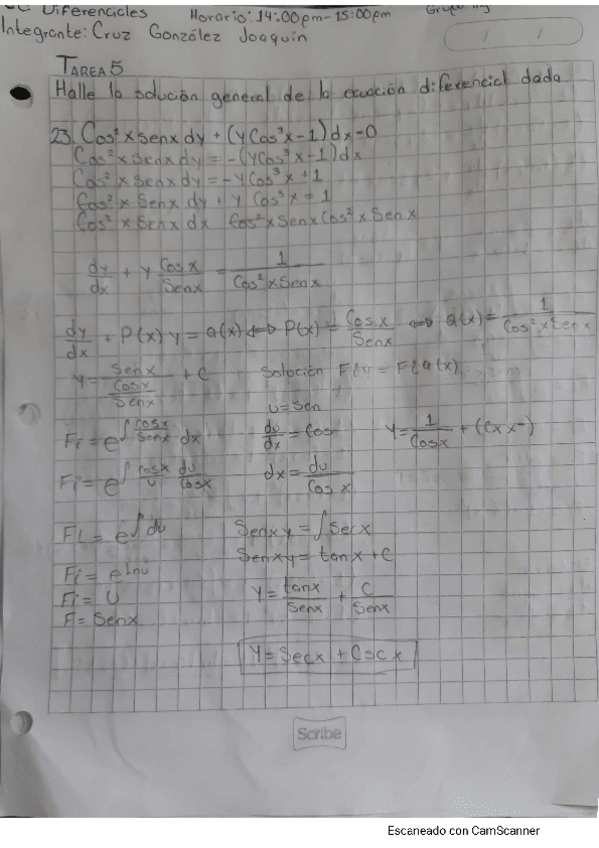 Diferenciales Horario: 14:00pm-15:00pm
Integrante: Cruz González Joaquín
TAREA 5
Halle la solución general de la ecuación diferencial dada.
23. Cos²xsenxdy+(yCos³x-1)dx=0
Cos²xSenxdy=-(yCos³x-1)dx
Cos²xSenxdy=-yCos³x+1
Cos²x Senx dy + y Cos³x = 1
Cos²xSenx dx Cos²xSenx Cos²xSenx
dy/dx + y Cosx/Senx = 1/Cos²xSenx
dy/dx + P(x)y=Q(x)⇔P(x)=Cosx/Senx ⇔ Q(x)=1/Cos²xSenx
y=Senx/(Cosx/Senx)+C Solución
u=Sen
Fi=e^∫Cosx/Senx dx du/dx=Cos y=1/Cosx
Fi=e^∫Cosx/u du/Cosx dx=du/Cosx
Fi=e^∫du Senxy=∫Secx
Fi=e^lnu Senxy=tanx+C
Fi=u y=tanx/Senx+C/Senx
F=Senx
y=Secx+Cscx
Scribe
Escaneado con CamScanner